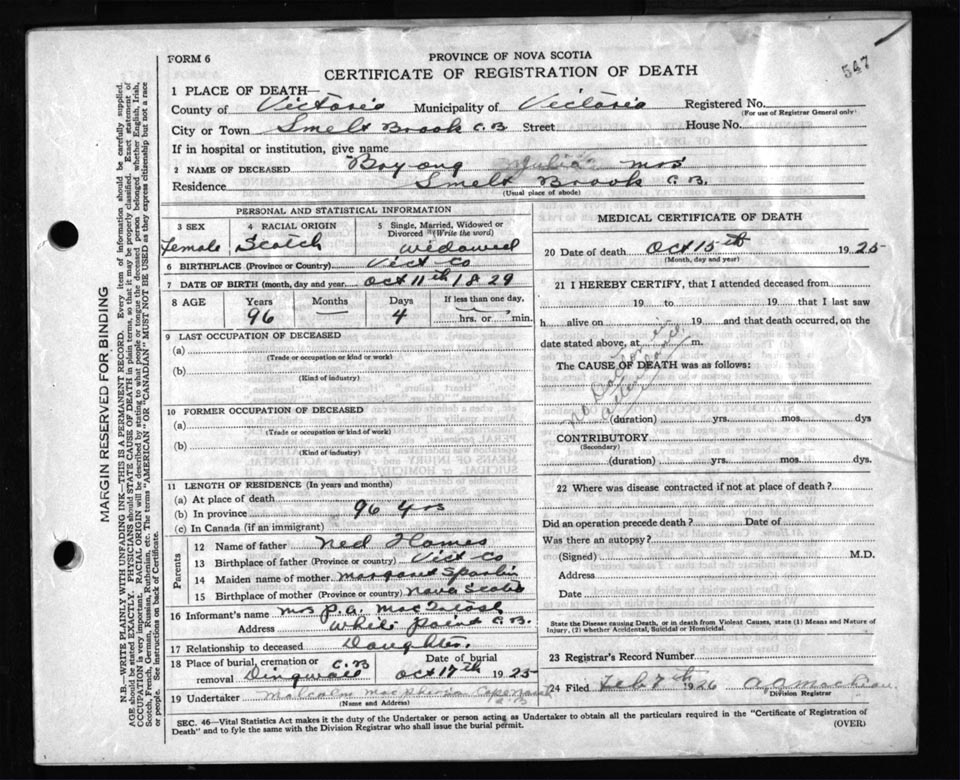 547
FORM 6
PROVINCE OF NOVA SCOTIA
CERTIFICATE OF REGISTRATION OF DEATH
1 PLACE OF DEATH—
County of Victoria Municipality of Victoria Registered No.
(For use of Registrar General only)
City or Town Smelt Brook C.B Street House No.
If in hospital or institution, give name
2 NAME OF DECEASED Boyong Julia Mrs
Residence Smelt Brook C.B.
(Usual place of abode)
PERSONAL AND STATISTICAL INFORMATION
3 SEX 4 RACIAL ORIGIN 5 Single, Married, Widowed or Divorced (Write the word)
Female Scotch widowed
6 BIRTHPLACE (Province or Country) Vict Co
7 DATE OF BIRTH (month, day and year) Oct 11th 1829
8 AGE Years Months Days If less than one day,
96 — 4 hrs. or min.
9 LAST OCCUPATION OF DECEASED
(a)
(Trade or occupation or kind or work)
(b)
(Kind of industry)
10 FORMER OCCUPATION OF DECEASED
(a)
(Trade or occupation or kind of work)
(b)
(Kind of industry)
11 LENGTH OF RESIDENCE (In years and months)
(a) At place of death
(b) In province 96 yrs
(c) In Canada (if an immigrant)
Parents
12 Name of father Ned Homes
13 Birthplace of father (Province or country) Vict Co
14 Maiden name of mother Margaret
15 Birthplace of mother (Province or country) Nova Scotia
16 Informant's name Mrs P.A. MacIntosh
Address White Point C.B.
17 Relationship to deceased Daughter.
18 Place of burial, cremation or removal Dingwall C.B Date of burial Oct 17th 1925
19 Undertaker Malcolm MacPherson Cape North C.B
(Name and Address)
MEDICAL CERTIFICATE OF DEATH
20 Date of death Oct 15th 1925
(Month, day and year)
21 I HEREBY CERTIFY, that I attended deceased from
19 to 19 that I last saw
h alive on 19 and that death occurred, on the
date stated above, at m.
The CAUSE OF DEATH was as follows:
No Doctor in
(duration) yrs. mos. dys
CONTRIBUTORY
(Secondary)
(duration) yrs. mos. dys.
22 Where was disease contracted if not at place of death?
Did an operation precede death? Date of
Was there an autopsy?
(Signed) M.D.
Address
Date
State the Disease causing Death, or in death from Violent Causes, state (1) Means and Nature of Injury, (2) whether Accidental, Suicidal or Homicidal.
23 Registrar's Record Number
24 Filed Feb 7th 1926
Division Registrar
SEC. 46—Vital Statistics Act makes it the duty of the Undertaker or person acting as Undertaker to obtain all the particulars required in the "Certificate of Registration of
Death" and to fyle the same with the Division Registrar who shall issue the burial permit. (OVER)
MARGIN RESERVED FOR BINDING
N.B.—WRITE PLAINLY WITH UNFADING INK—THIS IS A PERMANENT RECORD. Every item of information should be carefully supplied.
AGE should be stated EXACTLY. PHYSICIANS should STATE CAUSE OF DEATH in plain terms, so that it may be properly classified. Exact statement of
OCCUPATION is very important. RACIAL ORIGIN will be described by stating to what people or tongue the deceased person belonged whether English, Irish,
Scotch, French, German, Russian, Ruthenian, etc. The terms "AMERICAN" OR "CANADIAN" MUST NOT BE USED as they express citizenship but not a race
or people. See instructions on back of Certificate.